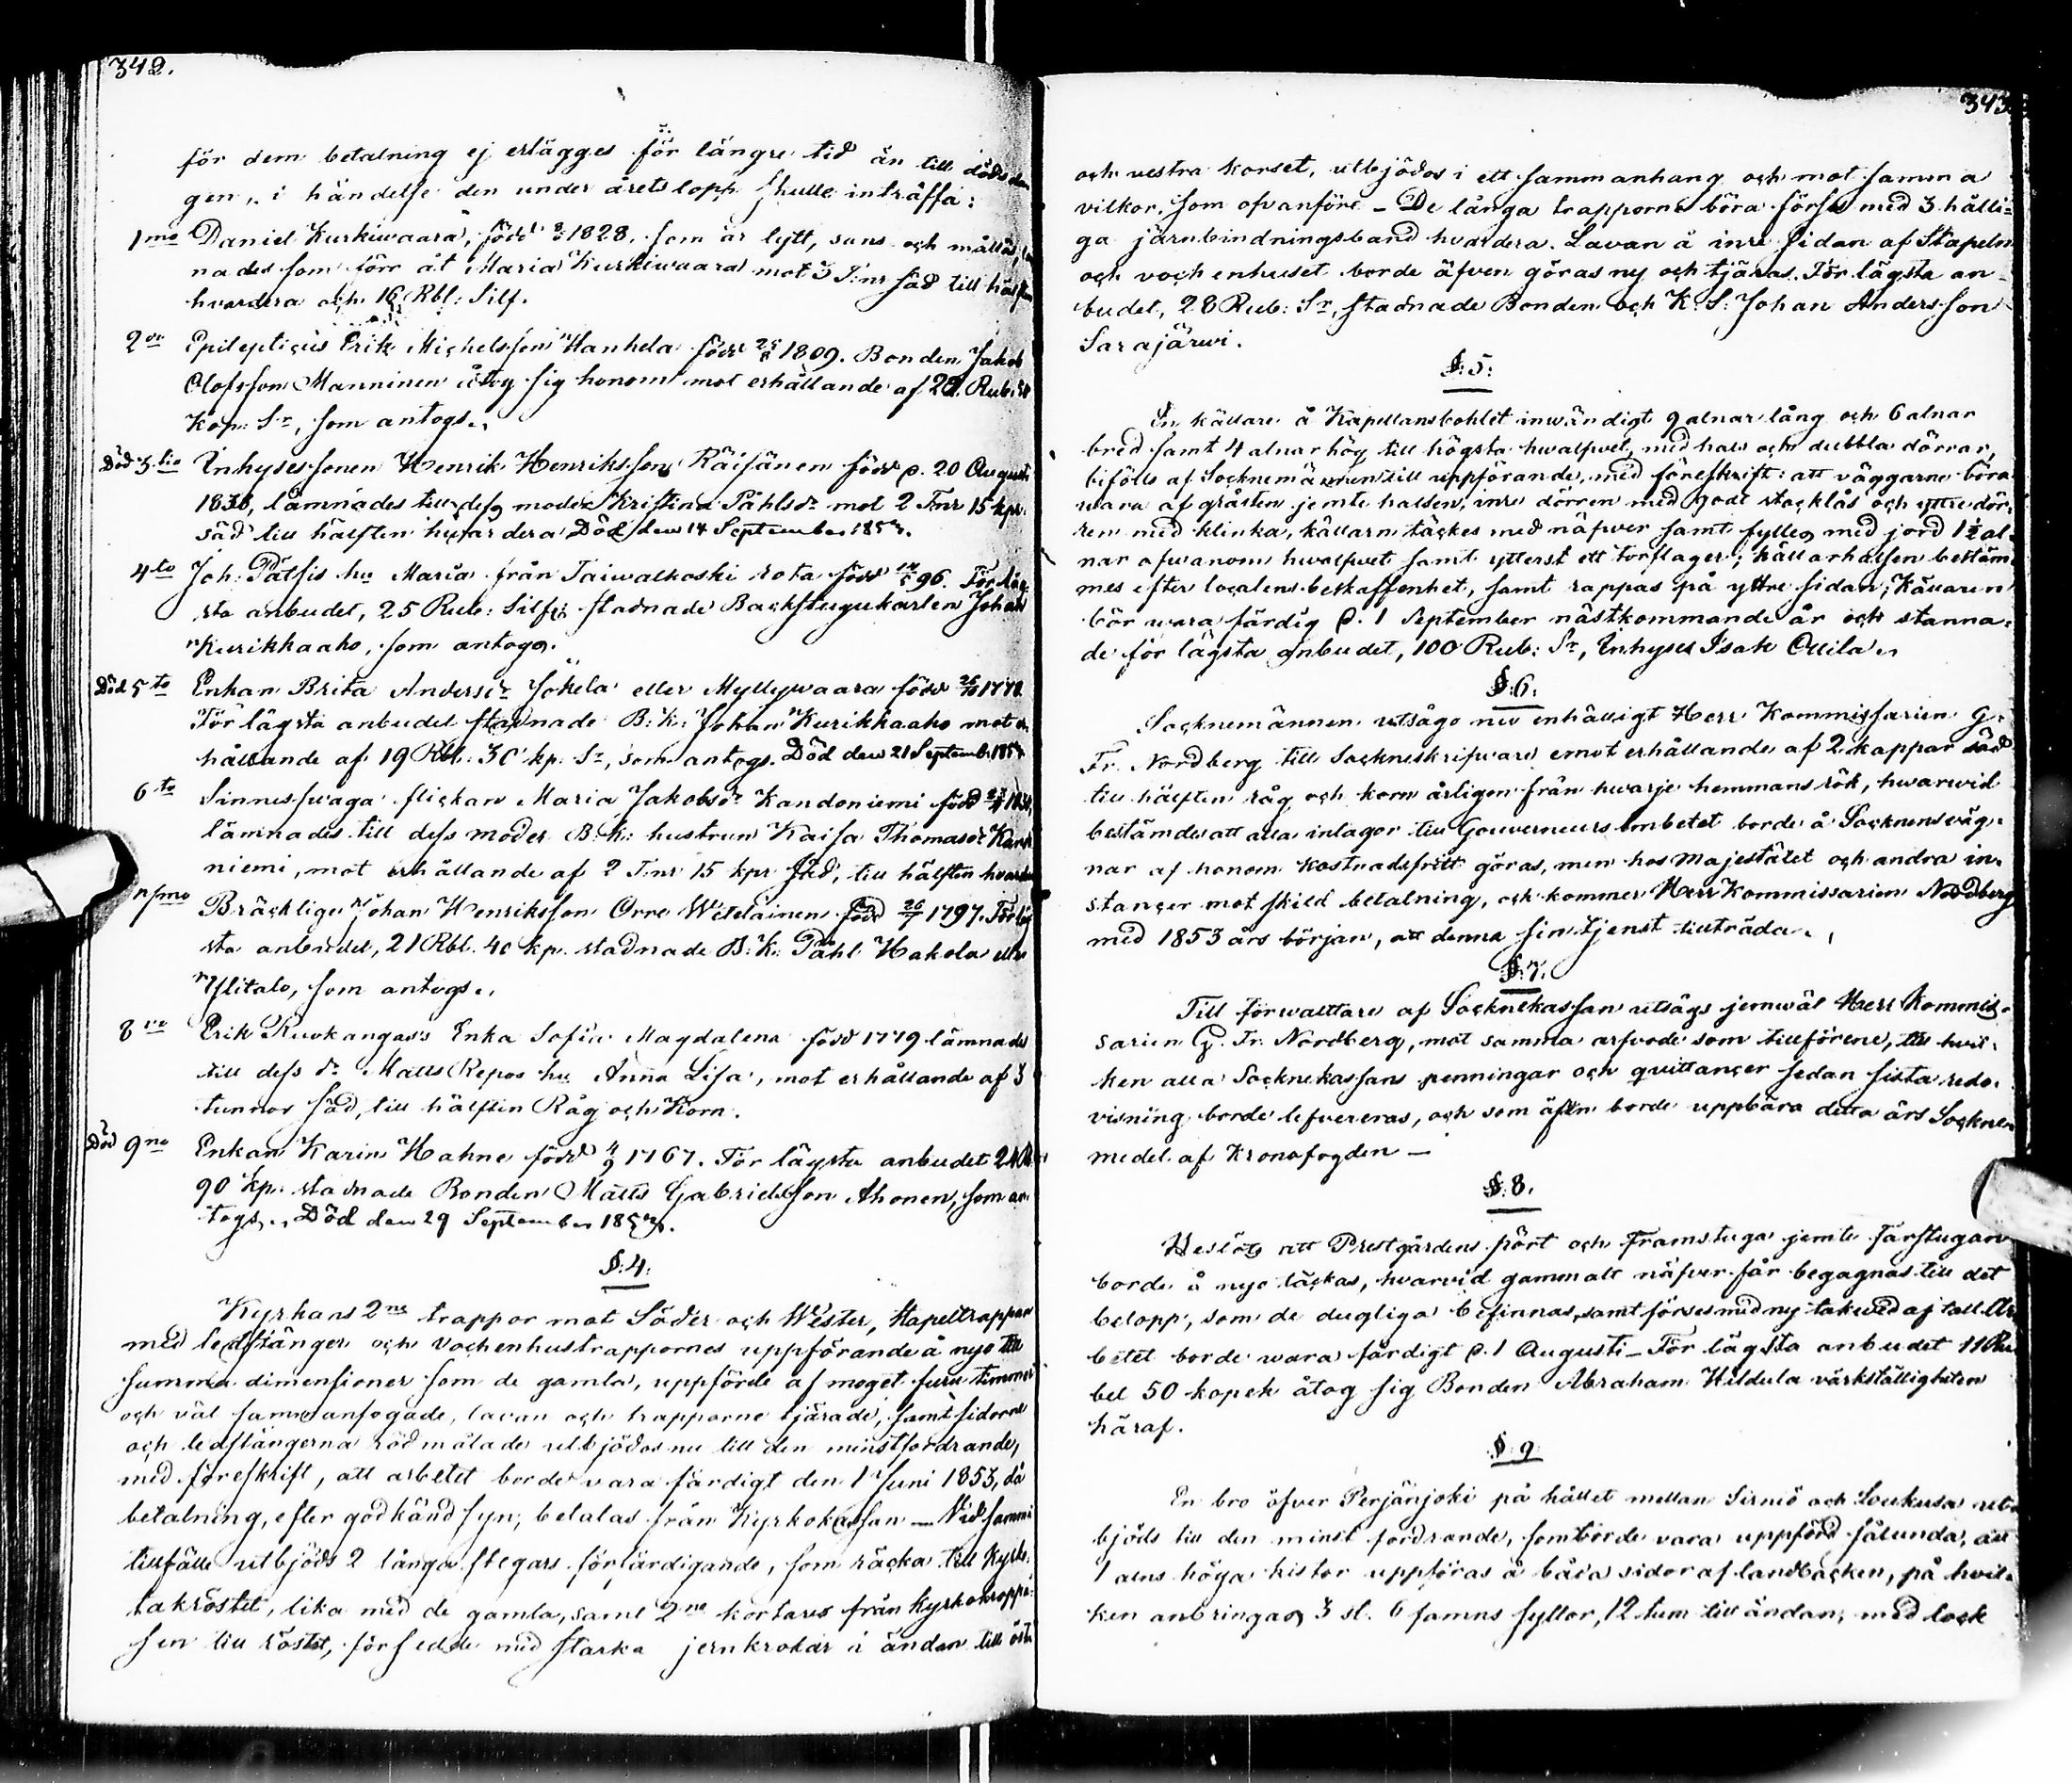 342.
för dem betalning ej erlägges för längre tid än till dödsda
gen, i händelse den under årets lopp skulle inträffa:
1mo Daniel Kurkiwaara, född 1828, som är lytt, sans och mållös,
nades som förr åt Maria Kurkiwaara mot 3 T:nr säd till hälften
hvardera och 16 Rbl: Silf.
2do Epilepticus Erik Michelsson Hanhela född 1809. Bonden Jakob
Olofsson Manninen åtog sig honom mot erhållande af 20. Rub:
Kop: Sr, som antogs.
Död 3tio Inhysessonen Henrik Henriksson Räisänen född d. 20 Augusti
1838, lämnades till dess moder Kristina Påhlsdr mot 2 Tnr 15 kpr
säd till hälften hvardera Död den 14 September 1853.
4to Joh: Pätsis hu Maria från Taiwalkoski rota född 96. För läg
sta anbudet, 25 Rub: Silfr stadnade Backstugukarlen Johan
Kurikkaaho, som antogs.
Död 5to Enkan Brita Andersdr Jokela eller Myllywaara född 1772.
För lägsta anbudet stadnade B: K: Johan Kurikkaaho mot er
hållande af 19 Rbl. 30 kp. Sr, som antogs. Död den 21 Septemb.
6to Sinnessvaga flickan Maria Jakobsdr Kandoniemi född
lämnades till dess moder B: k: hustrun Kaisa Thomasdr Kan
niemi, mot erhållande af 2 Tnr 15 kpr säd, till hälften hvardera
7mo Bräcklige Johan Henriksson Orre Wetelainen född 26/7 1797. För läg
sta anbudet, 21 Rbl. 40 kp. stadnade B: K: Påhl Hakola eller
Ylitalo, som antogs.
8vo Erik Ruokangas's Enka Sofia Magdalena född 1779 lämnades
till dess dr Matts Repos hu Anna Lisa, mot erhållande af 3
tunnor säd, till hälften Råg och Korn.
Död 9no Enkan Karin Hahne född 4/9 1767. För lägsta anbudet 24 R
90 kp. stadnade Bonden Matts Gabrielsson Ahonen, som an
togs. Död den 29 September 1853.
§. 4.
Kyrkans 2ne trappor mot Söder och Wester, stapeltrappan
med ledstänger och vochenhustrappornes uppförande å nyo till
samma dimensioner som de gamla, uppförde af moget furu timmer
och väl sammanfogade, lavan och trapporne tjärade, samt sidorne
och ledstängerna rödmålade utbjödos nu till den minstfordrande,
med föreskrift, att arbetet borde vara färdigt den 1 Juni 1853, då
betalning, efter godkänd syn, betalas från Kyrkokassan — Vid samma
tillfälle utbjöds 2 långa stegars förfärdigande, som räcka till kyrk
takröstet, lika med de gamla, samt 2ne kortares från kyrkokroppe
sen till röstet, försedde med starka jernkrokar i ändan till öst
343.
och vestra korset, utbjödos i ett sammanhang och mot samma
vilkor, som ofvanföre – De långa trapporne böra förses med 3 hålli-
ga järnbindningsband hvardera. Lavan å inre sidan af Stapeln
och vochenhuset borde äfven göras ny och tjäras. För lägsta an-
budet, 28 Rub: Sr, stadnade Bonden och K: S: Johan Andersson
Sarajärwi.
§. 5.
En källare å Kapellansbohlet inwändigt 9 alnar lång och 6 alnar
bred samt 4 alnar hög till högsta hwalfwet, med hals och dubbla dörrar,
biföll af Socknemännen till uppförande, med föreskrift: att väggarne böra
wara af gråsten jemte halsen, inre dörren med godt stocklås och yttre dör-
ren med klinka, källarn täckes med näfver samt fylles med jord 1½ al-
nar ofwanom hwalfwet samt ytterst ett torflager; källarhalsen bestäm-
mes efter localens beskaffenhet, samt rappas på yttre sidan; Källaren
bör wara färdig d. 1 September nästkommande år och stanna-
de för lägsta anbudet, 100 Rub: Sr, Inhyses Isak Ollila.
§. 6.
Socknemännen utsågo nu enhälligt Herr Kommissarien G.
Fr. Nordberg till Sockneskrifware emot erhållande af 2 kappar säd
till hälften råg och korn årligen från hwarje hemmans rök, hwarwid
bestämdes att alla inlagor till Gouverneurs embetet borde å Socknens väg-
nar af honom kostnadsfritt göras, men hos Majestätet och andra in-
stancer mot skild betalning, och kommer Herr Kommissarien Nordberg
med 1853 års början, att denna sin tjenst tillträda.
§. 7.
Till förwaltare af Socknekassan utsågs jemwäl Herr Kommis-
sarien G. Fr. Nordberg, mot samma arfvode som tillförene, till hvil-
ken alla Socknekassans penningar och qvittancer sedan sista redo-
visning borde lefvereras, och som äfven borde uppbära detta års Socknen
medel af Kronofogden —
§. 8.
Beslöts att Prestgårdens pört och Framstuga jemte farstugan
borde å nyo täckas, hvarvid gammalt näfver får begagnas till det
belopp, som de dugliga befinnas, samt förses med ny takved af tall. Ar
betet borde wara färdigt d. 1 Augusti – För lägsta anbudet 11 Ru
bel 50 kopek åtog sig Bonden Abraham Hildula värkställigheten
häraf.
§ 9
En bro öfver Perjänjoki på hållet mellan Sirniö och Soukusa ut
bjöds till den minst fordrande, som borde vara uppförd sålunda, att
1 alns höga kistor uppföras å båda sidor af landbäcken, på hvil-
ken anbringas 3 st. 6 famns syllor, 12 tum till ändan, med lock